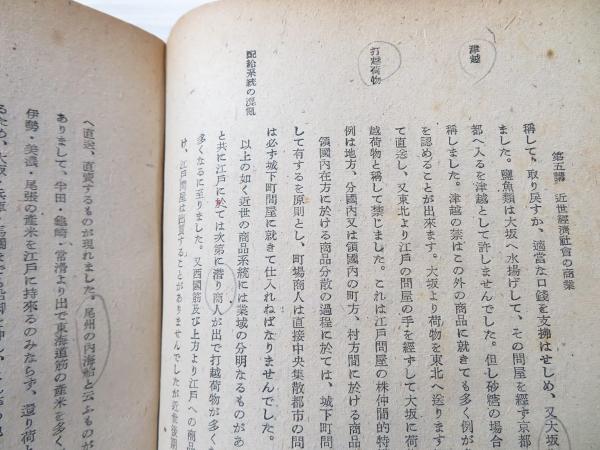 津越
打越荷物
配給系統の混亂
第五講 近世經濟社會の商業
稱して、取り戻すか、適當な口錢を支拂はせしめ、又大坂
ました。鹽魚類は大坂へ水揚げして、その問屋を經ず京都
都へ入るを津越として許しませんでした。但し砂糖の場合
稱しました。津越の禁はこの外の商品に就きても多く例が
を認めることが出來ます。大坂より荷物を東北へ送ります
て直送し、又東北より江戸の問屋の手を經ずして大坂に荷
越荷物と稱して禁じました。これは江戸問屋の株仲間的特
例は地方、分國内又は領國内の町方、村方間に於ける商品
領國内在方に於ける商品分散の過程に於ては、城下町問
して有するを原則とし、町場商人は直接中央集散都市の問
は必ず城下町問屋に就きて仕入れねばなりませんでした。
以上の如く近世の商品系統には業域の分明なるものがあ
と共に江戸に於ては次第に潜り商人が出で打越荷物が多く
多くなるに至りました。又西國筋及び上方より江戸への商品
け、江戸問屋は出買することがありませんでしたが近世後期
へ直送、直賣するものが現れました。尾州の内海船と云ふものが
ありまして、半田・龜崎・常滑より出で東海道筋の産米を多く
伊勢・美濃・尾張の産米を江戸に持來るのみならず、還り荷